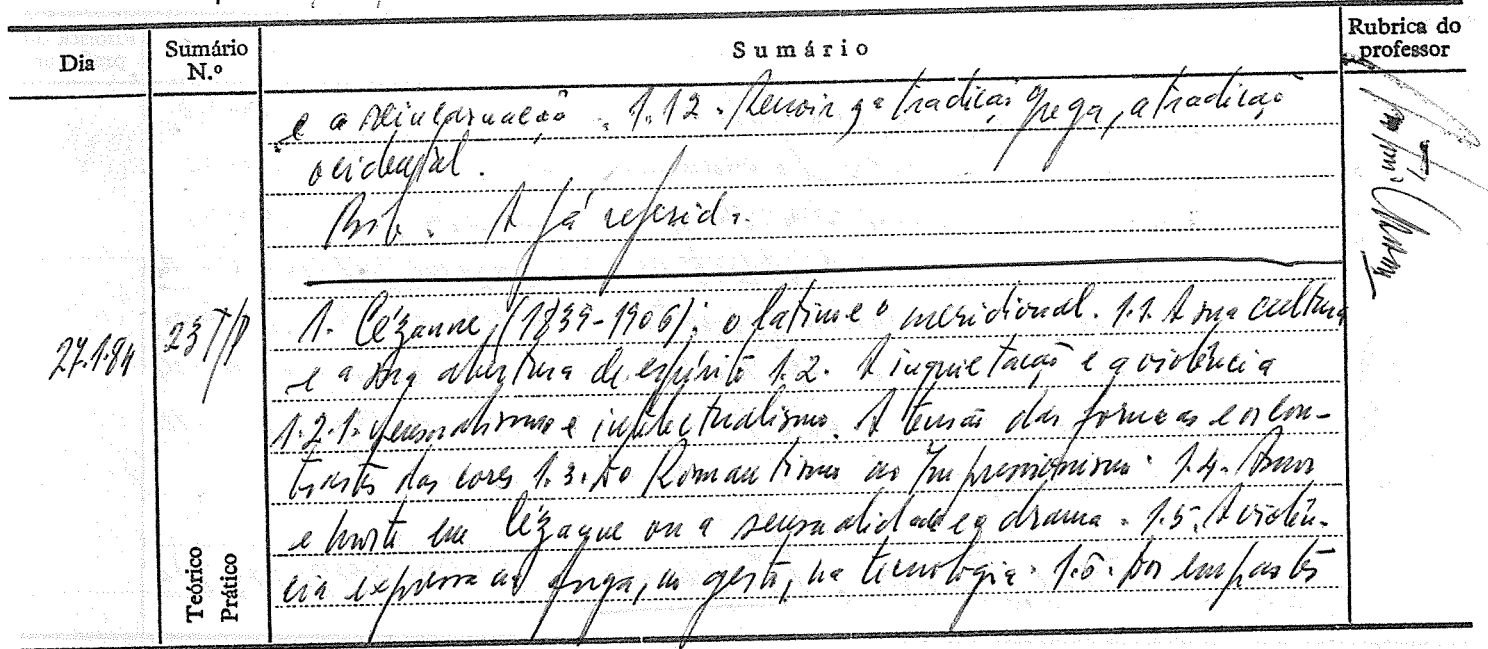 Dia Sumário N.º Sumário Rubrica do professor
e a reincarnação. 1.12. Renoir, a tradição grega, a tradição
ocidental.
Bib. A já referida.
27.1.84 23 T/P 1. Cézanne (1839-1906); o latino e o meridional. 1.1. A sua cultura
e a sua abertura de espírito 1.2. A inquietação e a violência
1.2.1. Sensualismo e intelectualismo. A tensão das formas e os con-
trastes das cores 1.3. Do Romantismo ao Impressionismo. 1.4. Amor
e morte em Cézanne ou a sensualidade e o drama. 1.5. A violên-
cia expressa na, no gesto, na tecnologia. 1.6. Dos empastes
Teórico
Prático